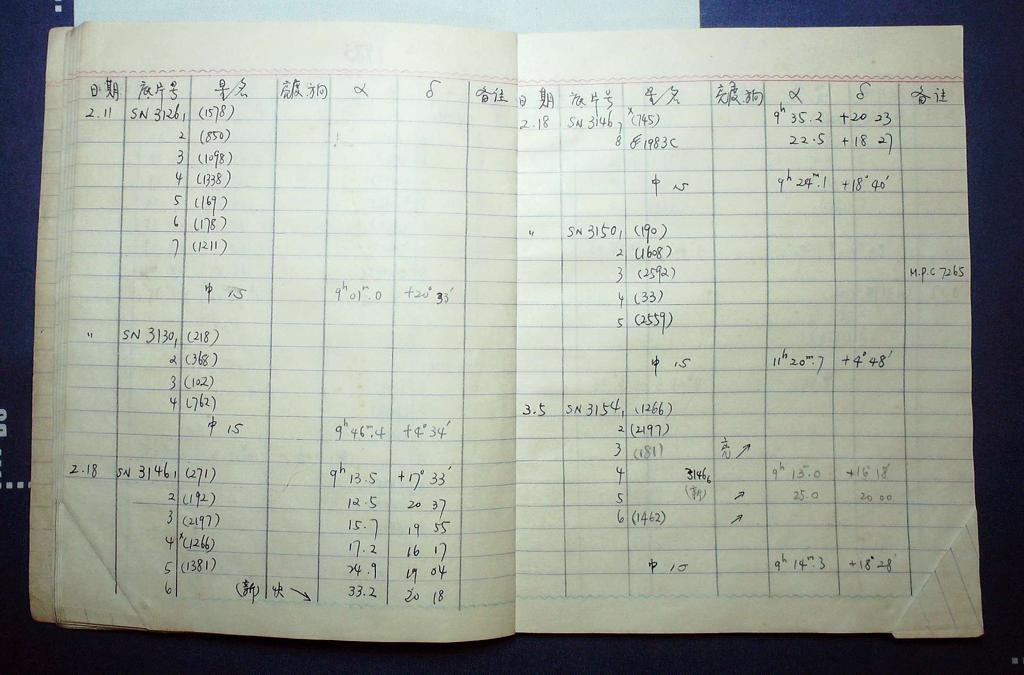 日期 底片号 星名 亮度 方向 α δ 备注
2.11 SN 3126 1 (1578)
2 (850)
3 (1098)
4 (1338)
5 (169)
6 (178)
7 (1211)
中 15 9h 01m.0 +20° 33′
〃 SN 3130 1 (218)
2 (368)
3 (102)
4 (762)
中 15 9h 46m.4 +4° 34′
2.18 SN 3146 1 (271) 9h 13.5 +17° 33′
2 (192) 12.5 20 37
3 (2197) 15.7 19 55
4 x(1266) 17.2 16 17
5 (1381) 24.9 19 04
6 (新) 快 ↘ 33.2 20 18
日期 底片号 星名 亮度 方向 α δ 备注
2.18 SN 3146 7 x(745) 9h 35.2 +20 23
8 1983C 22.5 +18 27
中 15 9h 24m.1 +18° 40′
〃 SN 3150 1 (190)
2 (1608)
3 (2592) M.P.C 7265
4 (33)
5 (2559)
中 15 11h 20m.7 +4° 48′
3.5 SN 3154 1 (1266)
2 (2197)
3 (181) 亮 ↗
4 3146 6 9h 13m.0 +16° 18′
5 (新) ↗ 25.0 20 00
6 (1462) ↗
中 10 9h 14m.3 +18° 28′